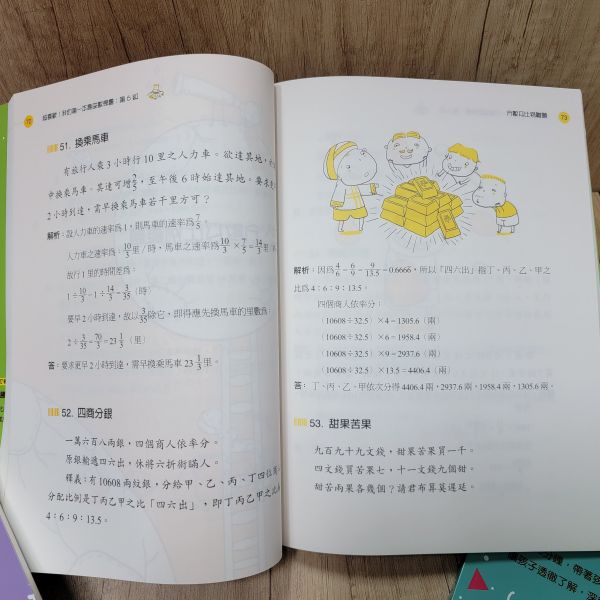 72
51. 換乘馬車
有旅行人乘3小時行10里之人力車。欲達其地,
中換乘馬車。其速可增2/5,至午後6時始達其地。要求
2小時到達,需早換乘馬車若干里方可?
解析:設人力車的速率為1,則馬車的速率為7/5。
人力車之速率為:10/3里/時,馬車之速率為10/3×7/5=14/3里/
故行1里的時間差為:
1÷10/3-1÷14/3=3/35(時)
要早2小時到達,故以3/35除它,即得應先換馬車的里數為:
2÷3/35=70/3=23 1/3(里)
答:要求更早2小時到達,需早換乘馬車23 1/3里。
52. 四商分銀
一萬六百八兩銀,四個商人依率分。
原銀輸遞四六出,休將六折術瞞人。
釋義:有10608兩紋銀,分給甲、乙、丙、丁四位
分配比例是丁丙乙甲之比「四六出」,即丁丙乙甲之比
4:6:9:13.5。
73
解析:因為4/6=6/9=9/13.5=0.6666,所以「四六出」指丁、丙、乙、甲之
比為4:6:9:13.5。
四個商人依率分:
(10608÷32.5)×4=1305.6(兩)
(10608÷32.5)×6=1958.4(兩)
(10608÷32.5)×9=2937.6(兩)
(10608÷32.5)×13.5=4406.4(兩)
答:丁、丙、乙、甲依次分得4406.4兩,2937.6兩,1958.4兩,1305.6兩。
53. 甜果苦果
九百九十九文錢,甜果苦果買一千。
四文錢買苦果七,十一文錢九個甜。
甜苦兩果各幾個?請君布算莫遲延。
分鐘,帶著孩
讓孩子透徹了解,深